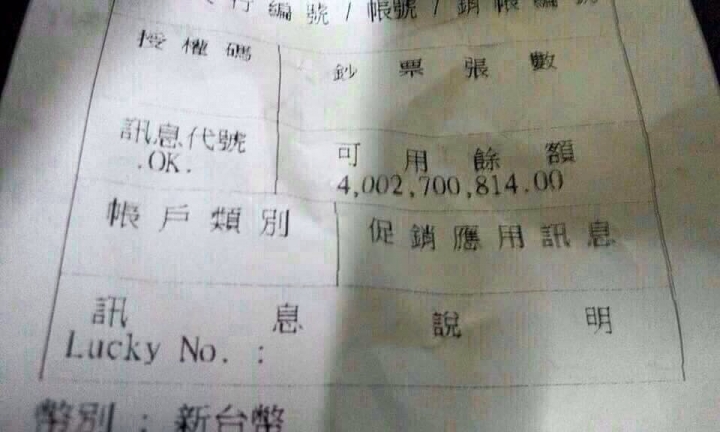 行編號/帳號/銷帳編號
授權碼 鈔票張數
訊息代號 可用餘額
.OK. 4,002,700,814.00
帳戶類別 促銷應用訊息
訊息說明
Lucky No. :
幣別 : 新台幣